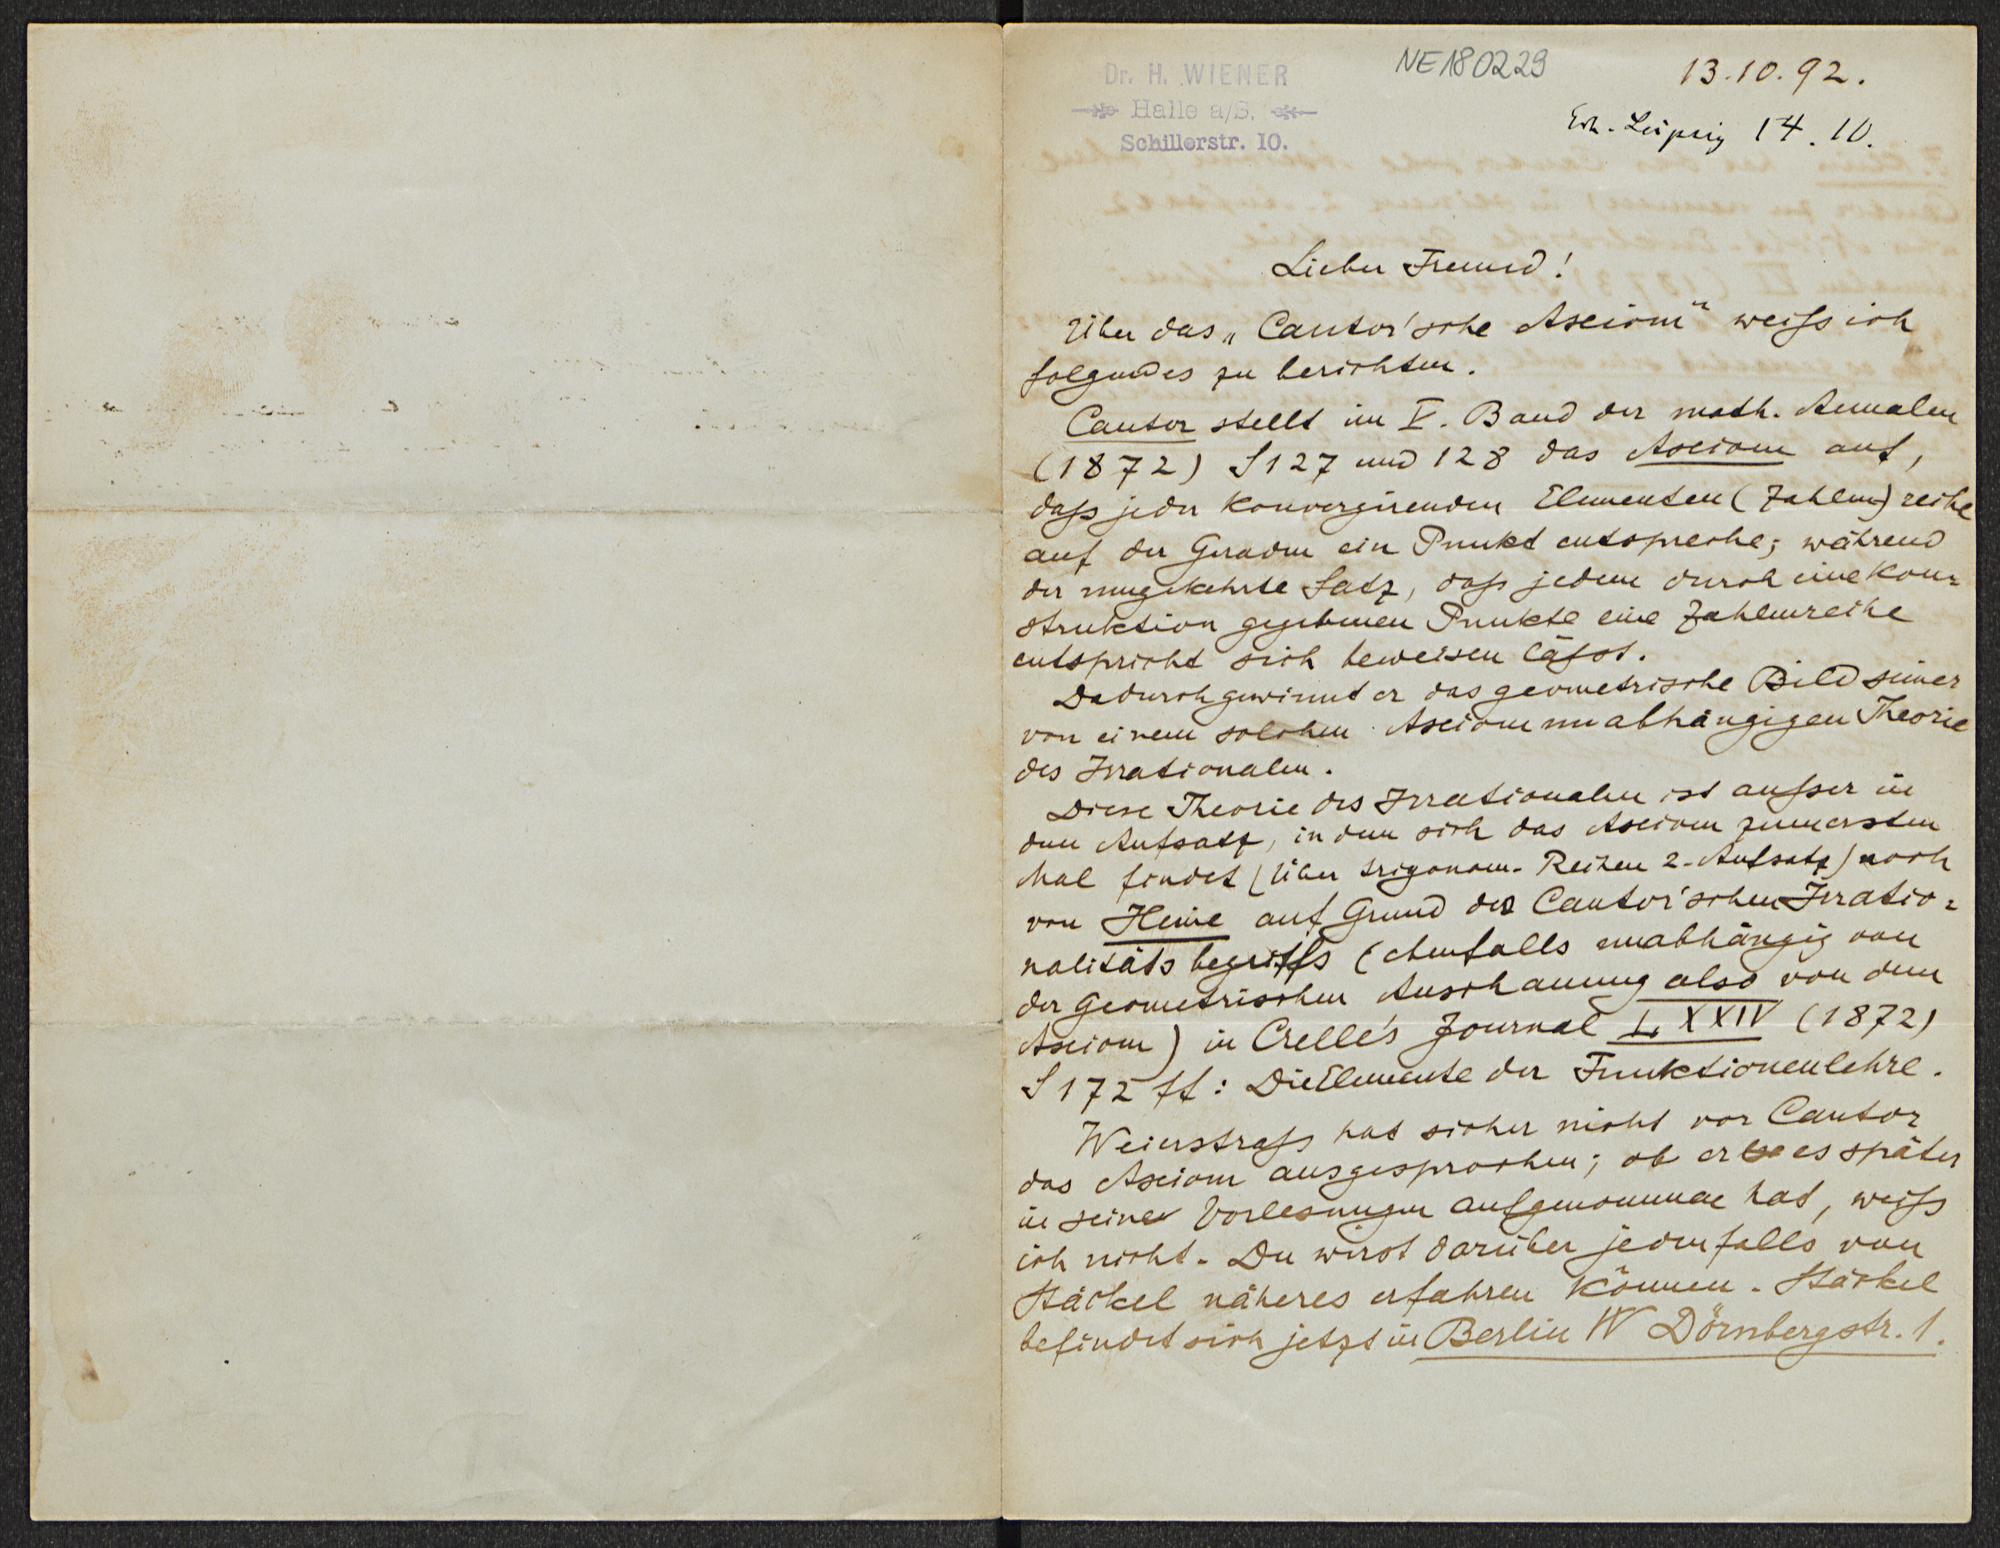 Dr. H. WIENER
Halle a/S.
Schillerstr. 10.
NE180229
13.10.92.
Erh. Leipzig 14.10.
Lieber Freund!
Über das „Cantor'sche Axiom“ weiß ich
folgendes zu berichten.
Cantor stellt im V. Band der math. Annalen
(1872) S 127 und 128 das Axiom auf,
daß jeder konvergirenden Elementen (Zahlen) reihe
auf der Geraden ein Punkt entspreche; während
der umgekehrte Satz, daß jedem durch eine Kon=
struktion gegebenen Punkte eine Zahlenreihe
entspricht sich beweisen läßt.
Dadurch gewinnt er das geometrische Bild seiner
von einem solchen Axiom unabhängigen Theorie
des Irrationalen.
Diese Theorie des Irrationalen ist außer in
dem Aufsatz, in dem sich das Axiom zum ersten
Mal findet (Über trigonom. Reihen 2. Aufsatz) noch
von Heine auf Grund des Cantor'schen Irratio=
nalitätsbegriffs (ebenfalls unabhängig von
der geometrischen Anschauung also von dem
Axiom) in Crelle's Journal LXXIV (1872)
S 172 ff: Die Elemente der Funktionenlehre.
Weierstraß hat sicher nicht vor Cantor
das Axiom ausgesprochen; ob er es später
in seine Vorlesungen aufgenommen hat, weiß
ich nicht. Du wirst darüber jedenfalls von
Stäckel näheres erfahren können. Stäckel
befindet sich jetzt in Berlin W Dörnbergstr. 1.